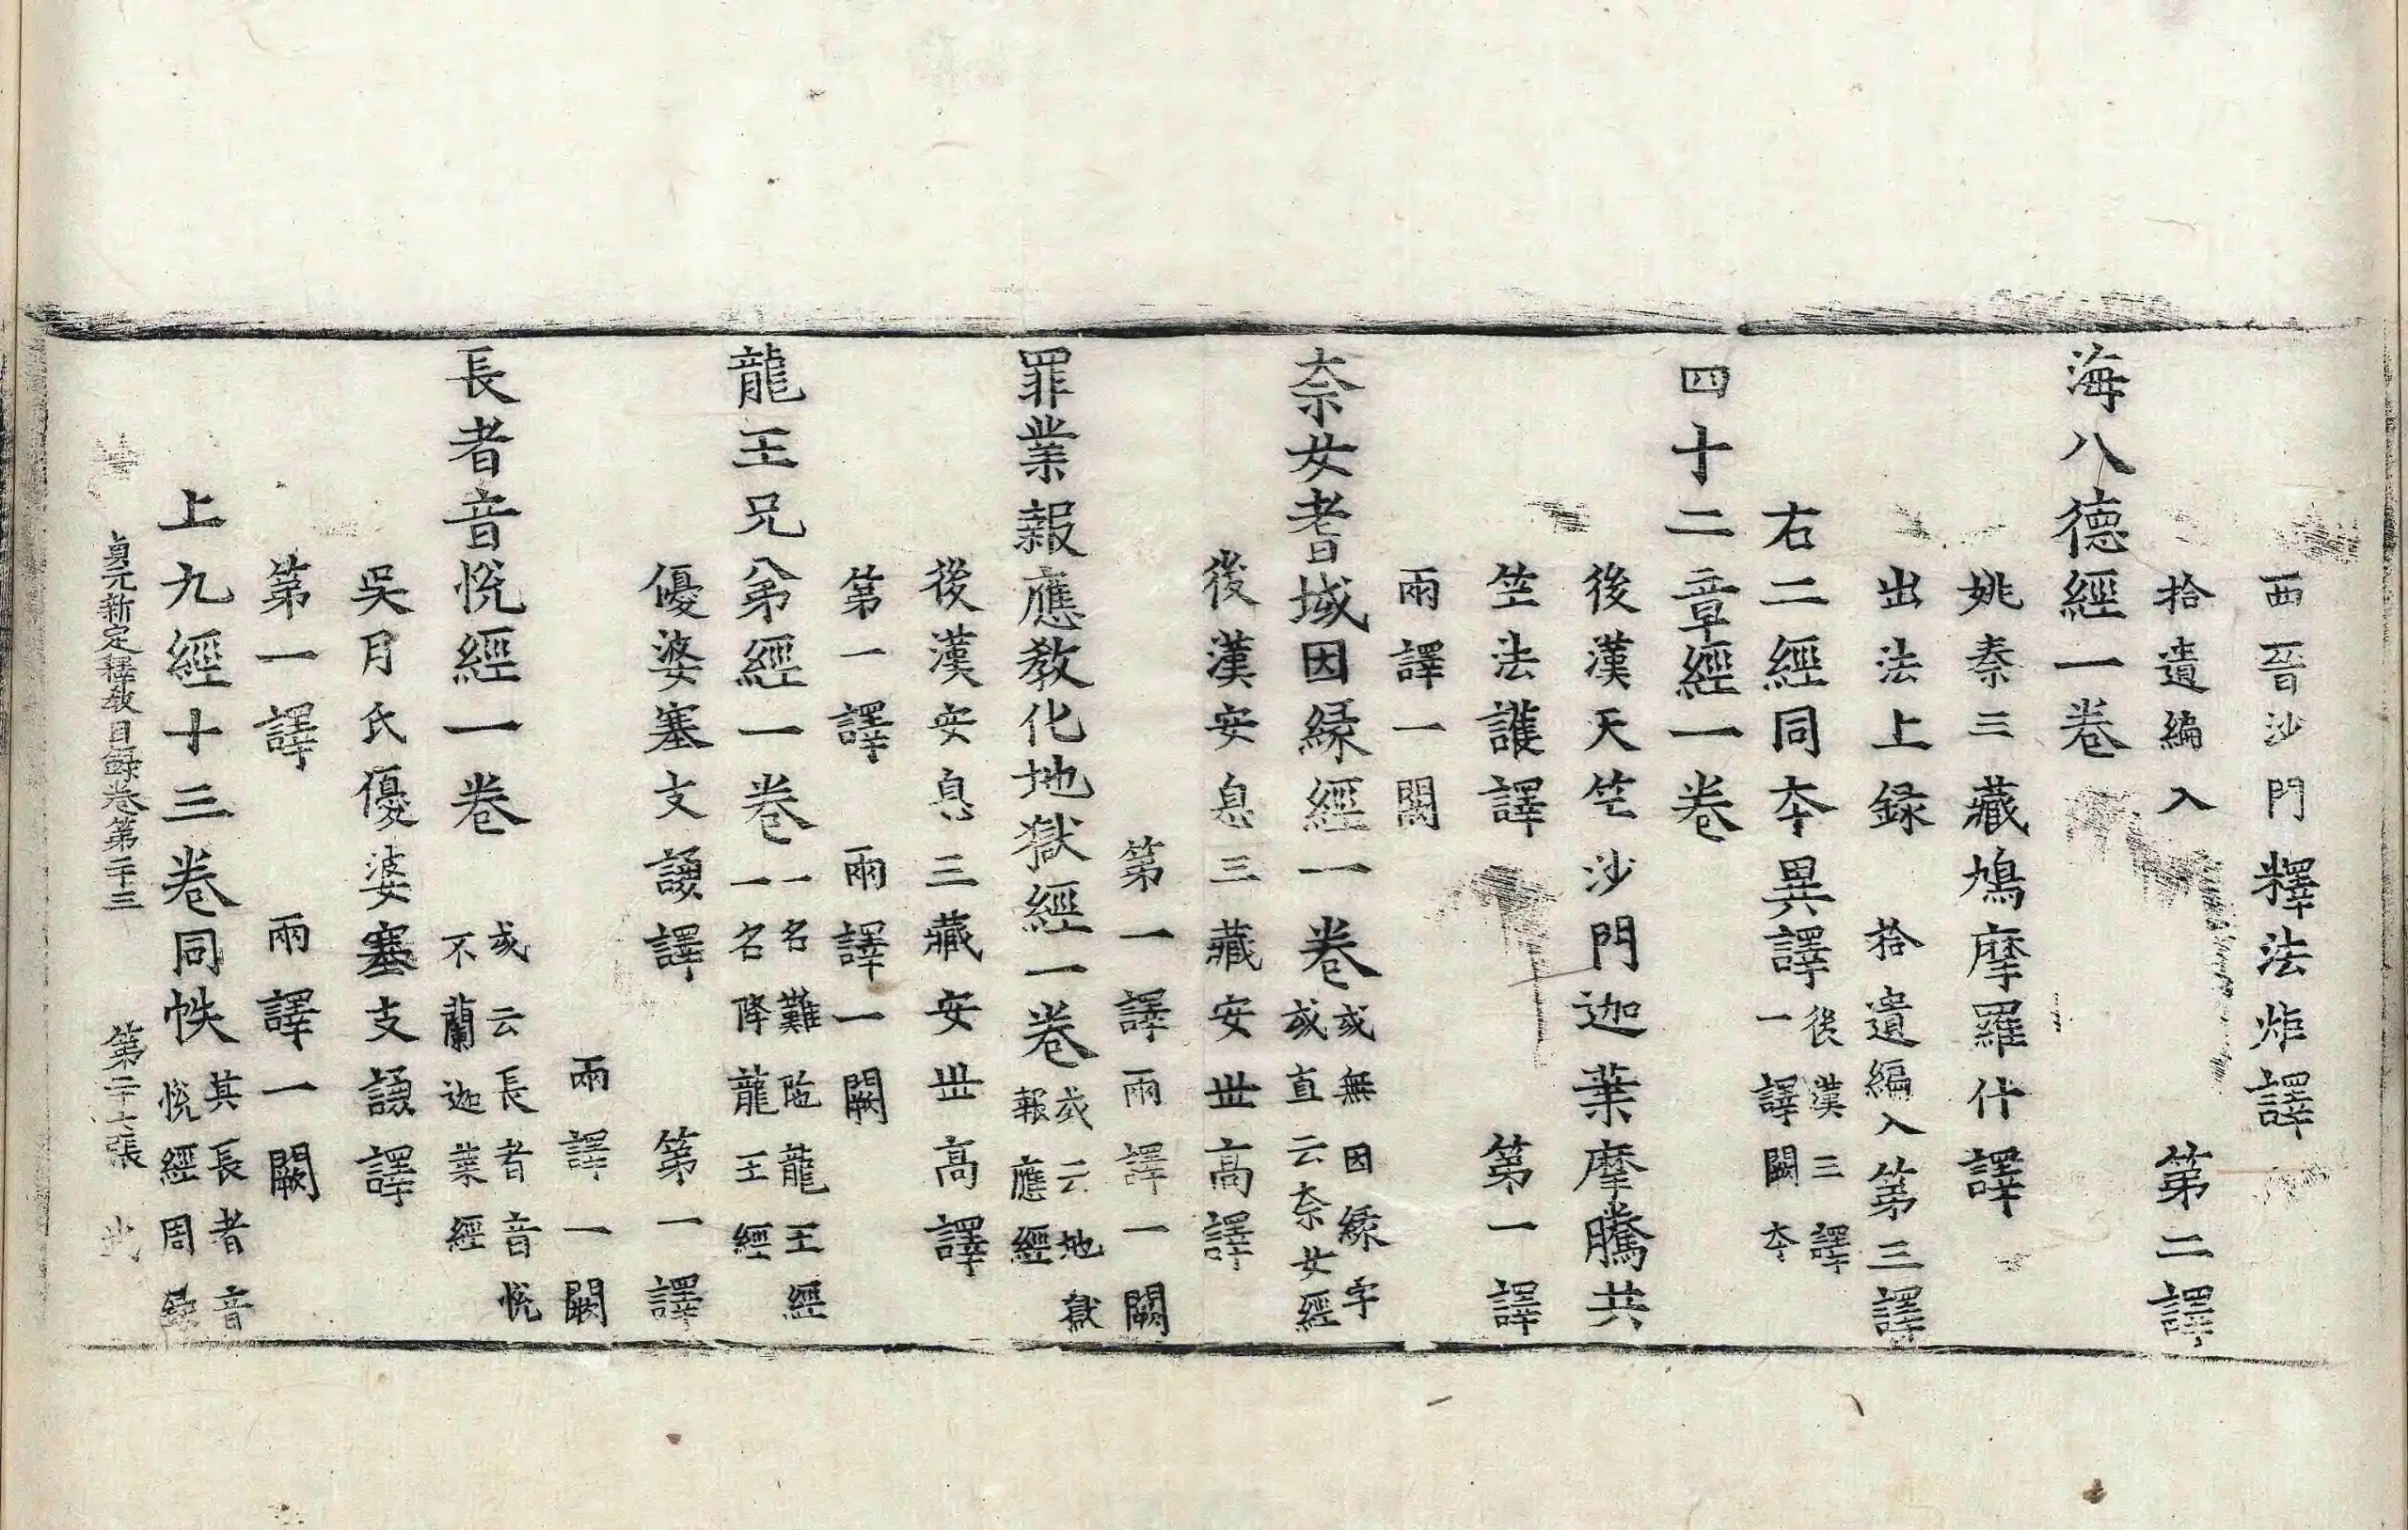 西晉沙門釋法炬譯
拾遺編入 第二譯
海八德經一卷
姚秦三藏鳩摩羅什譯
出法上録 拾遺編入第三譯
右二經同夲異譯後漢三譯一譯闕夲
四十二章經一卷
後漢天竺沙門迦葉摩騰共
竺法護譯 第一譯
兩譯一闕
柰女耆域因縁經一卷或無因縁字或直云柰女經
後漢安息三藏安丗高譯
第一譯兩譯一闕
罪業報應教化地獄經一卷或云地獄報應經
後漢安息三藏安丗高譯
第一譯 兩譯一闕
龍王兄弟經一卷一名難陁龍王經一名降龍王經
優婆塞支謙譯 第一譯
兩譯一闕
長者音悅經一卷 或云長者音悅不蘭迦葉經
吳月氏優婆塞支謙譯
第一譯 兩譯一闕
上九經十三卷同帙其長者音悅經周録
貞元新定釋教目録卷第二十三 第二十七張